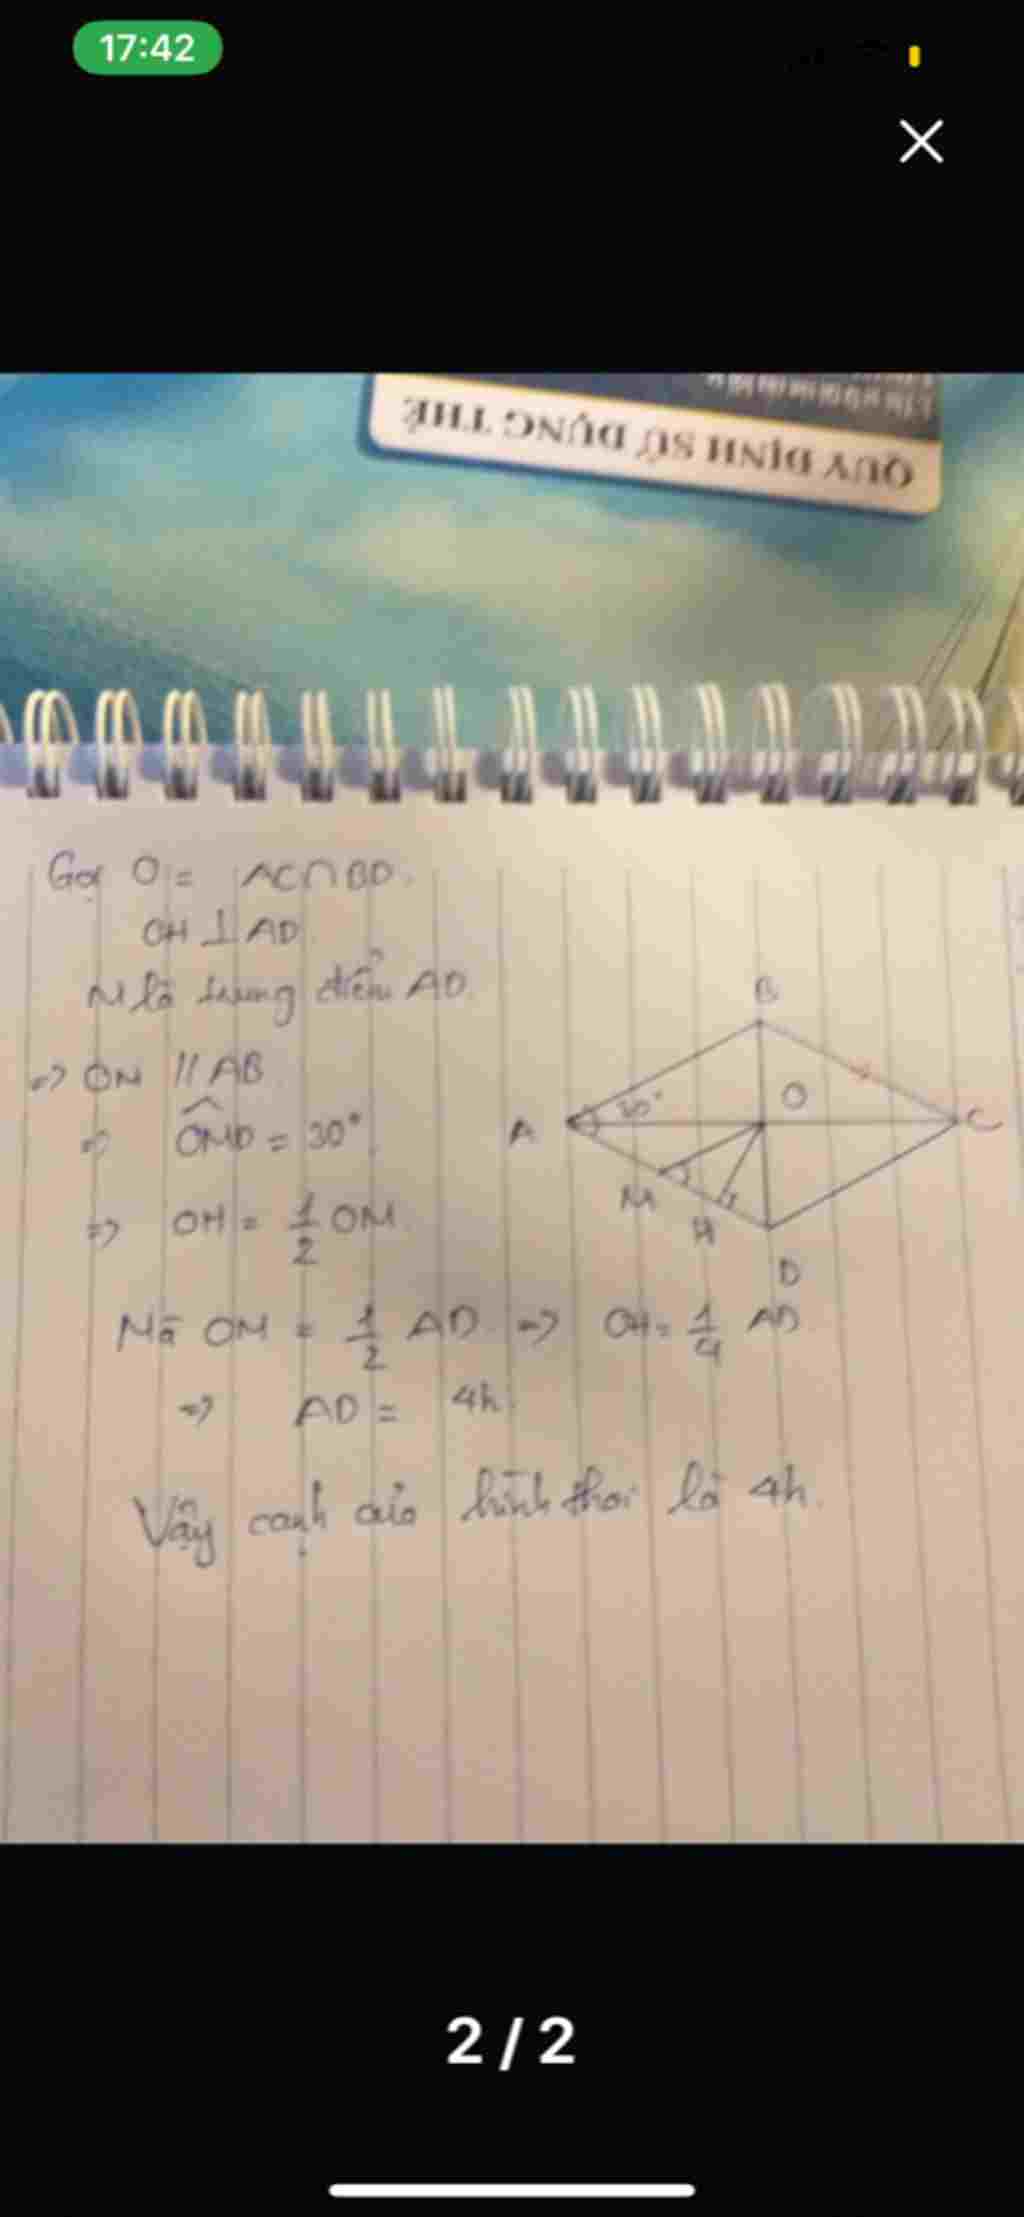 17:42
QUY ĐỊNH SỬ DỤNG THẺ
Gọi O = AC∩BD.
OH ⊥ AD
M là trung điểm AD
=> OM // AB
=> \widehat{OMD} = 30°
=> OH = 1/2 OM
Mà OM = 1/2 AD => OH = 1/4 AD
=> AD = 4h.
Vậy cạnh của hình thoi là 4h.
B
30°
O
A
C
M
H
D
2 / 2